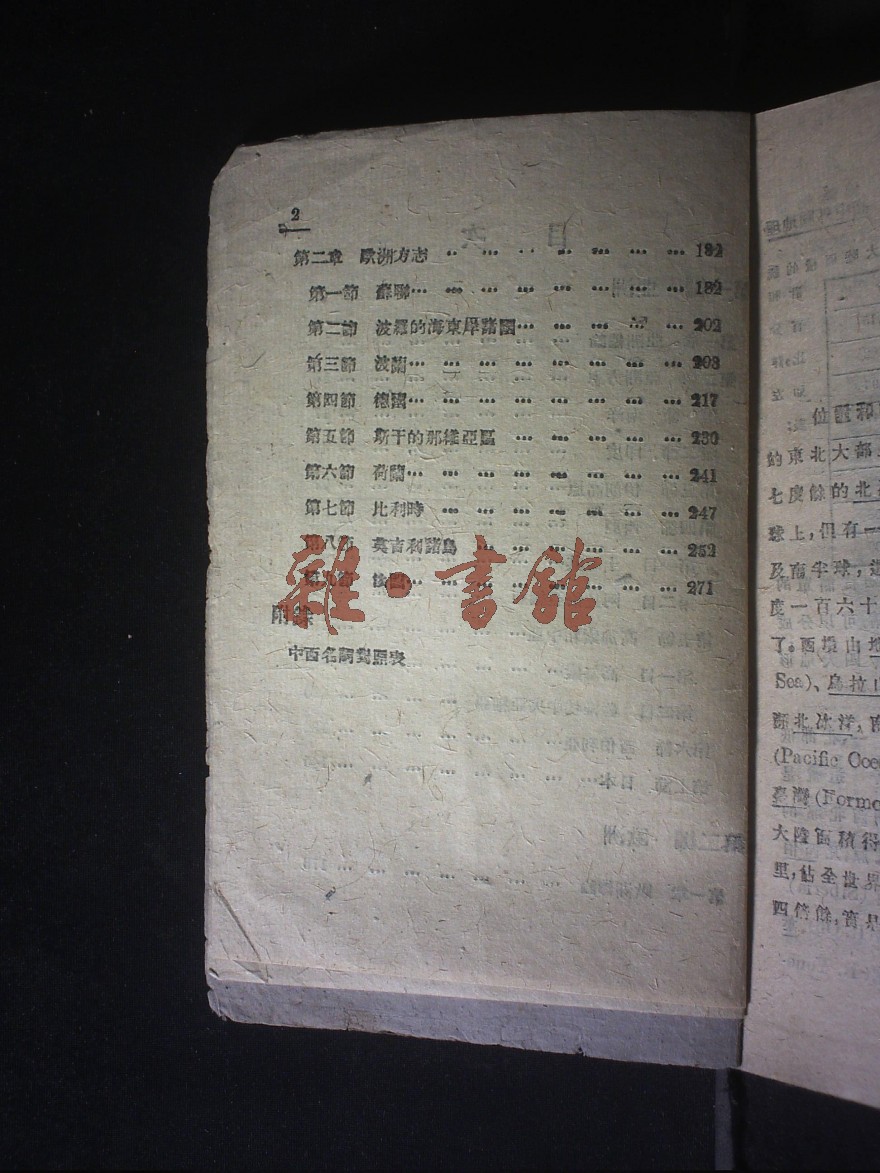 2
第二章 歐洲方志 … … … … … … … 182
第一節 蘇聯… … … … … … … … 182
第二節 波羅的海東岸諸國… … … … … 202
第三節 波蘭… … … … … … … … 203
第四節 德國… … … … … … … … 217
第五節 斯干的那維亞區 … … … … … 230
第六節 荷蘭… … … … … … … … 241
第七節 比利時 … … … … … … … 247
第八節 英吉利諸島 … … … … … … 252
第九節 … … … … … … … … 271
附錄
中西名詞對照表
雜·書館
位置和
的東北大部
七度餘的北
球上,但有一
及南半球,
度一百六十
了。西境山地
Sea)、烏拉山
瀕北冰洋,
(Pacific Oce
臺灣(Formo
大陸面積得
里,佔全世界
四倍餘,實是